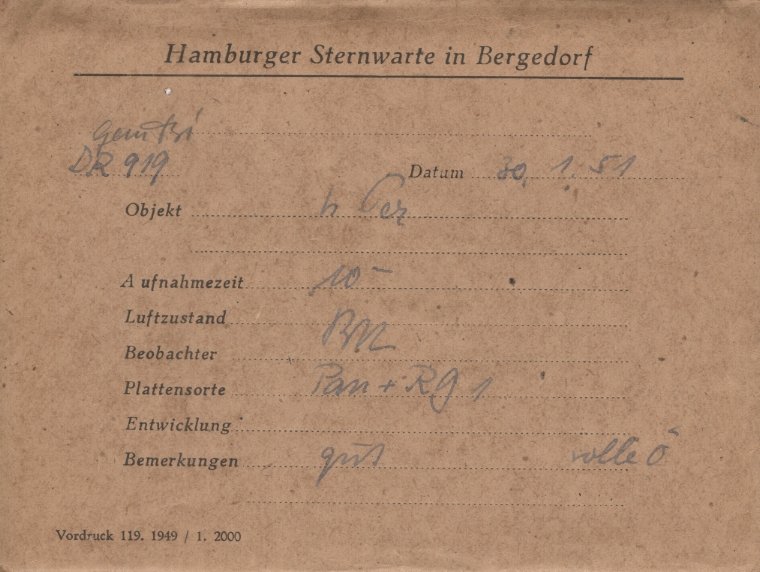 Hamburger Sternwarte in Bergedorf
DR 919
Datum 30. 1. 51
Objekt h
Aufnahmezeit 10
Luftzustand
Beobachter
Plattensorte Pan + RG 1
Entwicklung
Bemerkungen gut volle Ö
Vordruck 119. 1949 / 1. 2000